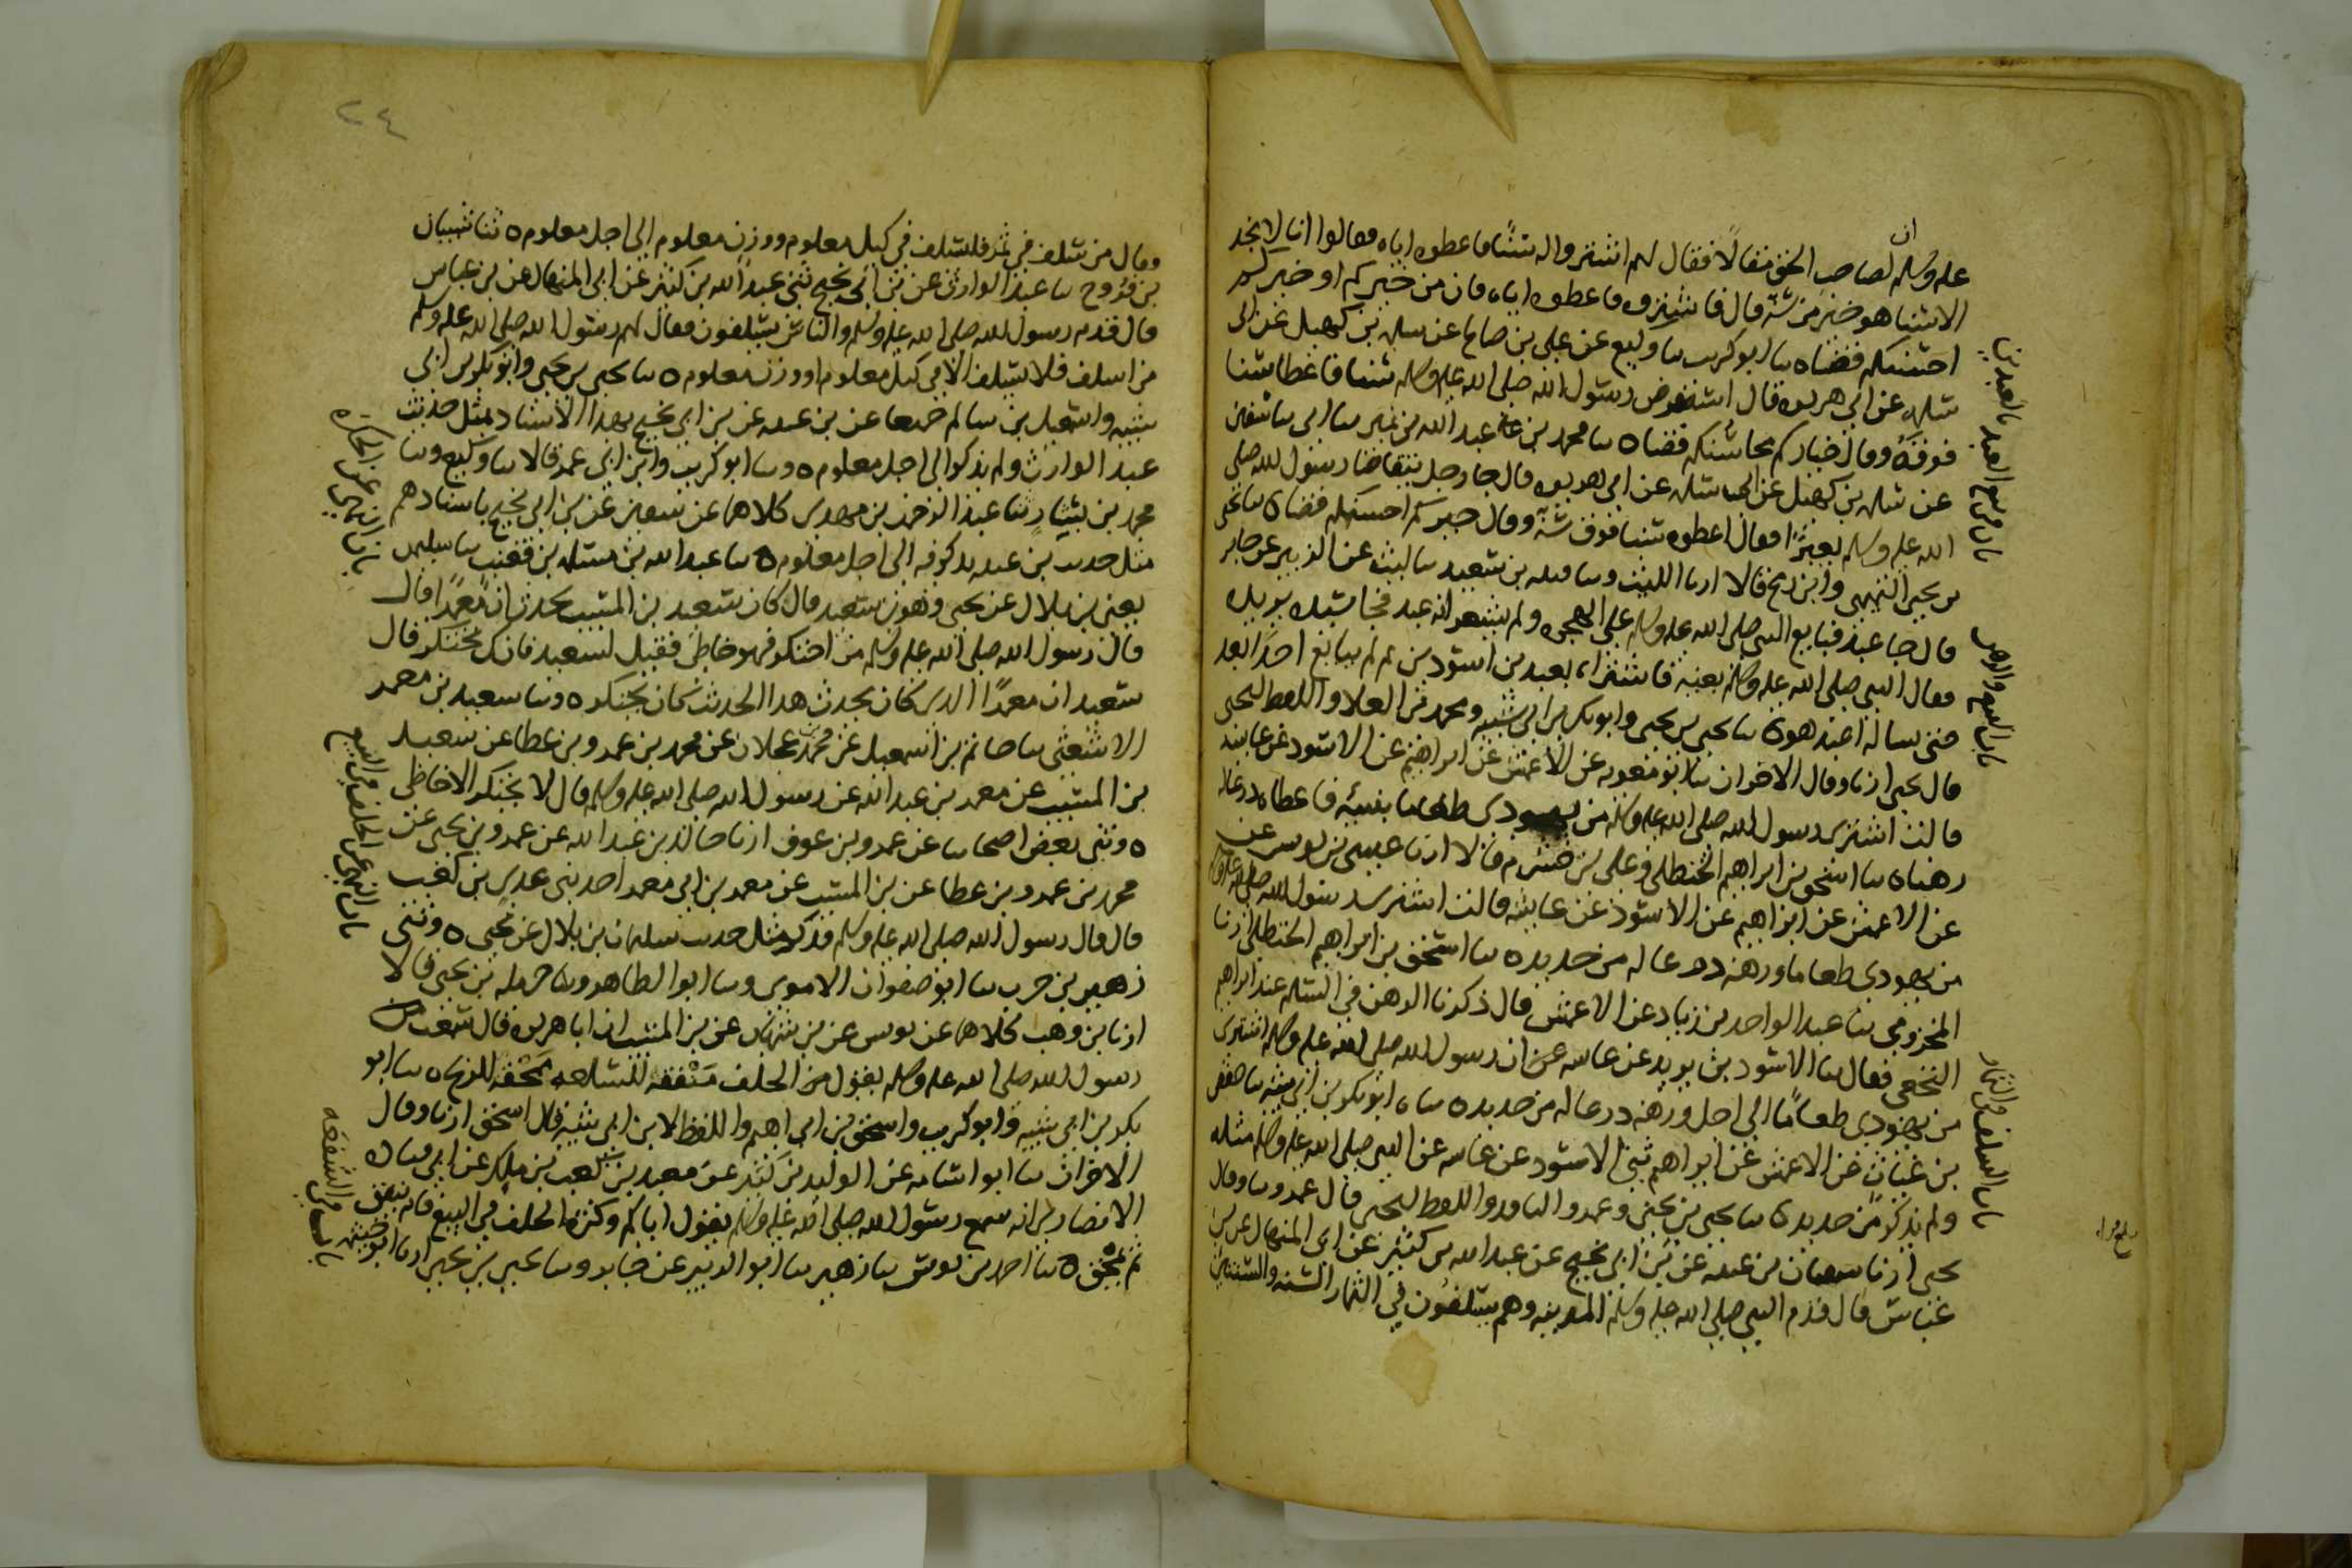 ان
عليه وسلم ان لصاحب الحق مقالا فقال لهم اشتروا له سنا فاعطوه اياه فقالوا انا لا نجد
الا سنا هو خير من سنه قال فاشتروه فاعطوه اياه فان من خيركم او خيركم
احسنكم قضاه نا ابو كريب نا وكيع عن علي بن صالح عن سلمه بن كهيل عن ابي
سلمه عن ابي هريره قال استقرض رسول الله صلى الله عليه وسلم سنا فاعطا سنا
فوقه وقال خياركم محاسنكم قضاه نا محمد بن عبد الله بن نمير نا ابي نا سفين
عن سلمه بن كهيل عن ابي سلمه عن ابي هريره قال جا رجل يتقاضا رسول الله صلى
الله عليه وسلم بعيرا فقال اعطوه سنا فوق سنه وقال خيركم احسنكم قضاه نا يحيى
بن يحيى التميمي وابن رمح قالا ارنا الليث ونا قتيبه بن سعيد نا ليث عن الزبير عن جابر
قال جا عبد فبايع النبي صلى الله عليه وسلم على الهجره ولم يشعر انه عبد فجا سيده يريده
فقال النبي صلى الله عليه وسلم بعنيه فاشتراه بعبدين اسودين ثم لم يبايع احدا بعد
حتى يساله اعبد هو ه نا يحيى بن يحيى وابو بكر بن ابي شيبه ومحمد بن العلا واللفظ ليحيى
قال يحيى ارنا وقال الاخران نا ابو معويه عن الاعمش عن ابراهيم عن الاسود عن عايشه
قالت اشترى رسول الله صلى الله عليه وسلم من يهودي طعاما بنسيه فاعطاه درعا له
رهنا ه نا اسحق بن ابراهيم الحنظلي وعلي بن خشرم قالا ارنا عيسى بن يونس عن
عن الاعمش عن ابراهيم عن الاسود عن عايشه قالت اشترى رسول الله صلى الله عليه وسلم
من يهودي طعاما ورهنه درعا له من حديد ه نا اسحق بن ابراهيم الحنظلي ارنا
المخزومي نا عبد الواحد بن زياد عن الاعمش قال ذكرنا الرهن في السلم عند ابراهيم
النخعي فقال نا الاسود بن يزيد عن عايشه ان رسول الله صلى الله عليه وسلم اشترى
من يهودي طعاما الى اجل ورهنه درعا له من حديد ه نا ابو بكر بن ابي شيبه نا حفص
بن غياث عن الاعمش عن ابراهيم ثني الاسود عن عايشه عن النبي صلى الله عليه وسلم مثله
ولم يذكر من حديد ه نا يحيى بن يحيى وعمرو الناقد واللفظ ليحيى قال عمرو نا وقال
يحيى ارنا سفيان بن عيينه عن بن ابي نجيح عن عبد الله بن كثير عن ابي المنهال عن بن
عباس قال قدم النبي صلى الله عليه وسلم المدينه وهم يسلفون في الثمار السنه والسنتين
باب في بيع العبد بالعبدين
باب البيع والرهن
باب السلف في الثمار
٢٤
وقال من سلف في ثمر فليسلف في كيل معلوم ووزن معلوم الى اجل معلوم ه ثنا شيبان
بن فروخ نا عبد الوارث عن بن ابي نجيح ثني عبد الله بن كثير عن ابي المنهال عن بن عباس
قال قدم رسول الله صلى الله عليه وسلم والناس يسلفون فقال لهم رسول الله صلى الله عليه وسلم
من اسلف فلا يسلف الا في كيل معلوم او وزن معلوم ه نا يحيى بن يحيى وابو بكر بن ابي
شيبه واسمعيل بن سالم جميعا عن بن عيينه عن بن ابي نجيح بهذا الاسناد بمثل حديث
عبد الوارث ولم يذكر الى اجل معلوم ه ونا ابو كريب وابن ابي عمر قالا نا وكيع ونا
محمد بن بشار نا عبد الرحمن بن مهدي كلاهما عن سفين عن بن ابي نجيح باسنادهم
مثل حديث بن عيينه يذكر فيه الى اجل معلوم ه نا عبد الله بن مسلمه بن قعنب نا سليمن
يعني بن بلال عن يحيى وهو بن سعيد قال كان سعيد بن المسيب يحدث ان معمرا قال
قال رسول الله صلى الله عليه وسلم من احتكر فهو خاطئ فقيل لسعيد فانك تحتكر قال
سعيد ان معمرا الذي كان يحدث هذا الحديث كان يحتكر ه ونا سعيد بن معمر
الاشعثي نا حاتم بن اسمعيل عن محمد بن عجلان عن محمد بن عمرو بن عطا عن سعيد
بن المسيب عن معمر بن عبد الله عن رسول الله صلى الله عليه وسلم قال لا يحتكر الا خاطئ
ه وثني بعض اصحابنا عن عمرو بن عوف ارنا خالد بن عبد الله عن عمرو بن يحيى عن
محمد بن عمرو بن عطا عن بن المسيب عن معمر بن ابي معمر احد بني عدي بن كعب
قال قال رسول الله صلى الله عليه وسلم فذكر مثل حديث سليمان بن بلال عن يحيى ه وثني
زهير بن حرب نا ابو صفوان الاموي ونا ابو الطاهر ونا حرمله بن يحيى قالا
ارنا بن وهب كلاهما عن يونس عن بن شهاب عن بن المسيب ان ابا هريره قال سمعت
رسول الله صلى الله عليه وسلم يقول من الحلف منفقه للسلعه ممحقه للربح ه نا ابو
بكر بن ابي شيبه وابو كريب واسحق بن ابراهيم واللفظ لابن ابي شيبه قال اسحق ارنا وقال
الاخران نا ابو اسامه عن الوليد بن كثير عن معبد بن كعب بن ملك عن ابي قتاده
الانصاري انه سمع رسول الله صلى الله عليه وسلم يقول اياكم وكثره الحلف في البيع فانه ينفق
ثم يمحق ه نا احمد بن يونس نا زهير نا ابو الزبير عن جابر ونا يحيى بن يحيى ارنا ابو خيثمه
باب النهي عن الحكره
باب النهي عن الحلف في البيع
باب في الشفعه